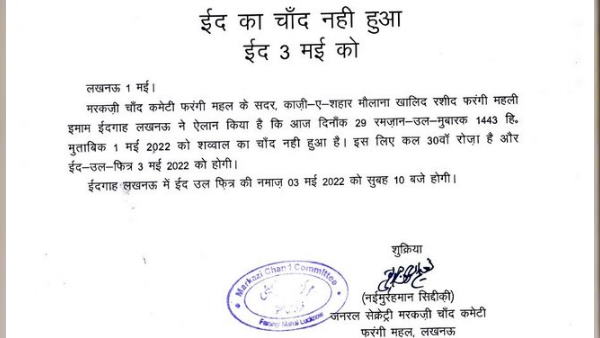 ईद का चाँद नही हुआ
ईद 3 मई को
लखनऊ 1 मई।
मरकज़ी चाँद कमेटी फरंगी महल के सदर, काज़ी-ए-शहर मौलाना खालिद रशीद फरंगी महली
इमाम ईदगाह लखनऊ ने ऐलान किया है कि आज दिनाँक 29 रमज़ान-उल-मुबारक 1443 हि॰
मुताबिक 1 मई 2022 को शव्वाल का चाँद नही हुआ है। इस लिए कल 30वाँ रोज़ा है और
ईद-उल-फित्र 3 मई 2022 को होगी।
ईदगाह लखनऊ में ईद उल फ़ित्र की नमाज़ 03 मई 2022 को सुबह 10 बजे होगी।
शुक्रिया
(नईमुर्रहमान सिद्दीकी)
जनरल सेक्रेट्री मरकज़ी चाँद कमेटी
फरंगी महल, लखनऊ
Markazi Chand Committee
Farangi Mahal Lucknow